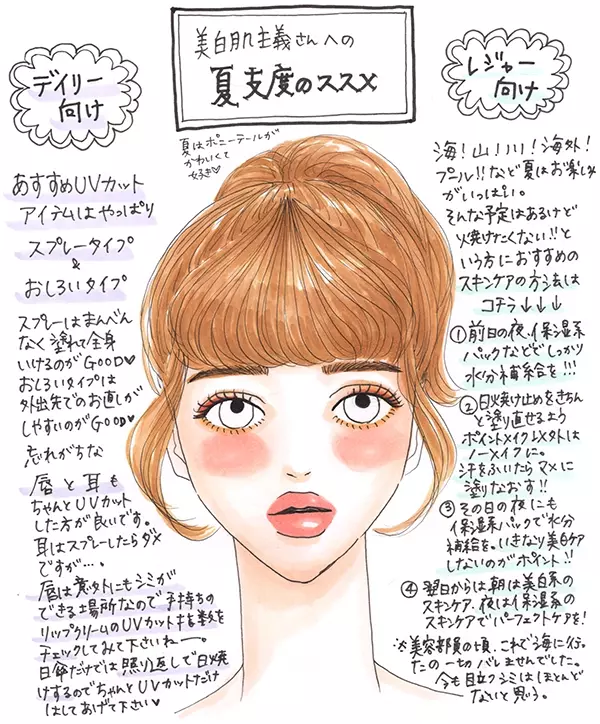 美白肌主義さんへの
夏支度のススメ
デイリー
向け
夏はポニーテールが
かわいくて
好き♡
おすすめUVカット
アイテムはやっぱり
スプレータイプ
&
おしろいタイプ
スプレーはまんべん
なく塗れて全身
いけるのがGOOD♡
おしろいタイプは
外出先でのお直しが
しやすいのがGOOD♡
忘れがちな
唇と耳も
ちゃんとUVカット
した方が良いです。
耳はスプレーしたらダメ
ですが…。
唇は意外にもシミが
できる場所なので手持ちの
リップクリームのUVカット指数を
チェックしてみて下さいねー。
日傘だけでは照り返しで日焼
けするのでちゃんとUVカットだけ
はしてあげて下さい♡
レジャー
向け
海!山!川!海外!
プール!!など夏はお楽しみ
がいっぱい。
そんな予定はあるけど
焼けたくない!!と
いう方におすすめの
スキンケアの方法は
コチラ↓↓↓
①前日の夜、保湿系
パックなどでしっかり
水分補給を!!!
②日焼け止めをきちん
と塗り直せるよう
ポイントメイク以外は
ノーメイクに。
汗をふいたらマメに
塗りなおす!!
③その日の夜にも
保湿系パックで水分
補給を。いきなり美白ケア
しないのがポイント!!
④翌日からは朝は美白系の
スキンケア、夜は保湿系の
スキンケアでパーフェクトケアを!
※美容部員の頃、これで海に行っ
たの一切バレませんでした。
今も目立つシミはほとんど
ないと思う。